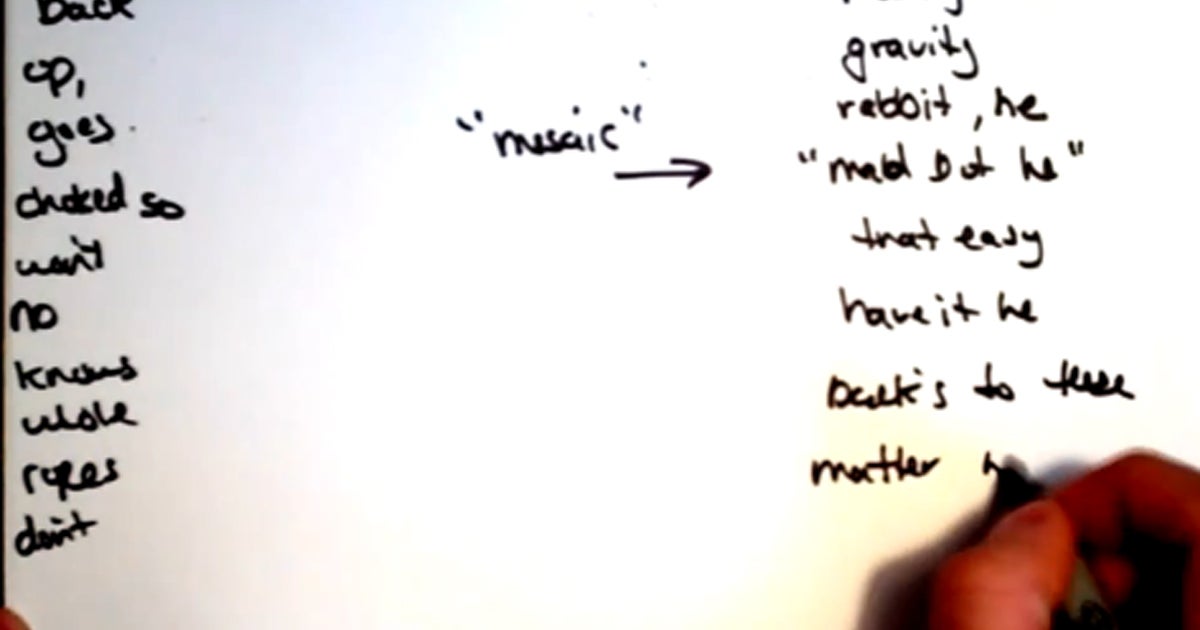 back
op,
goes
choked so
won't
no
knows
whole
ropes
don't
"mosaic"
gravity
rabbit, he
"mad but he"
that easy
have it he
back's to these
matter